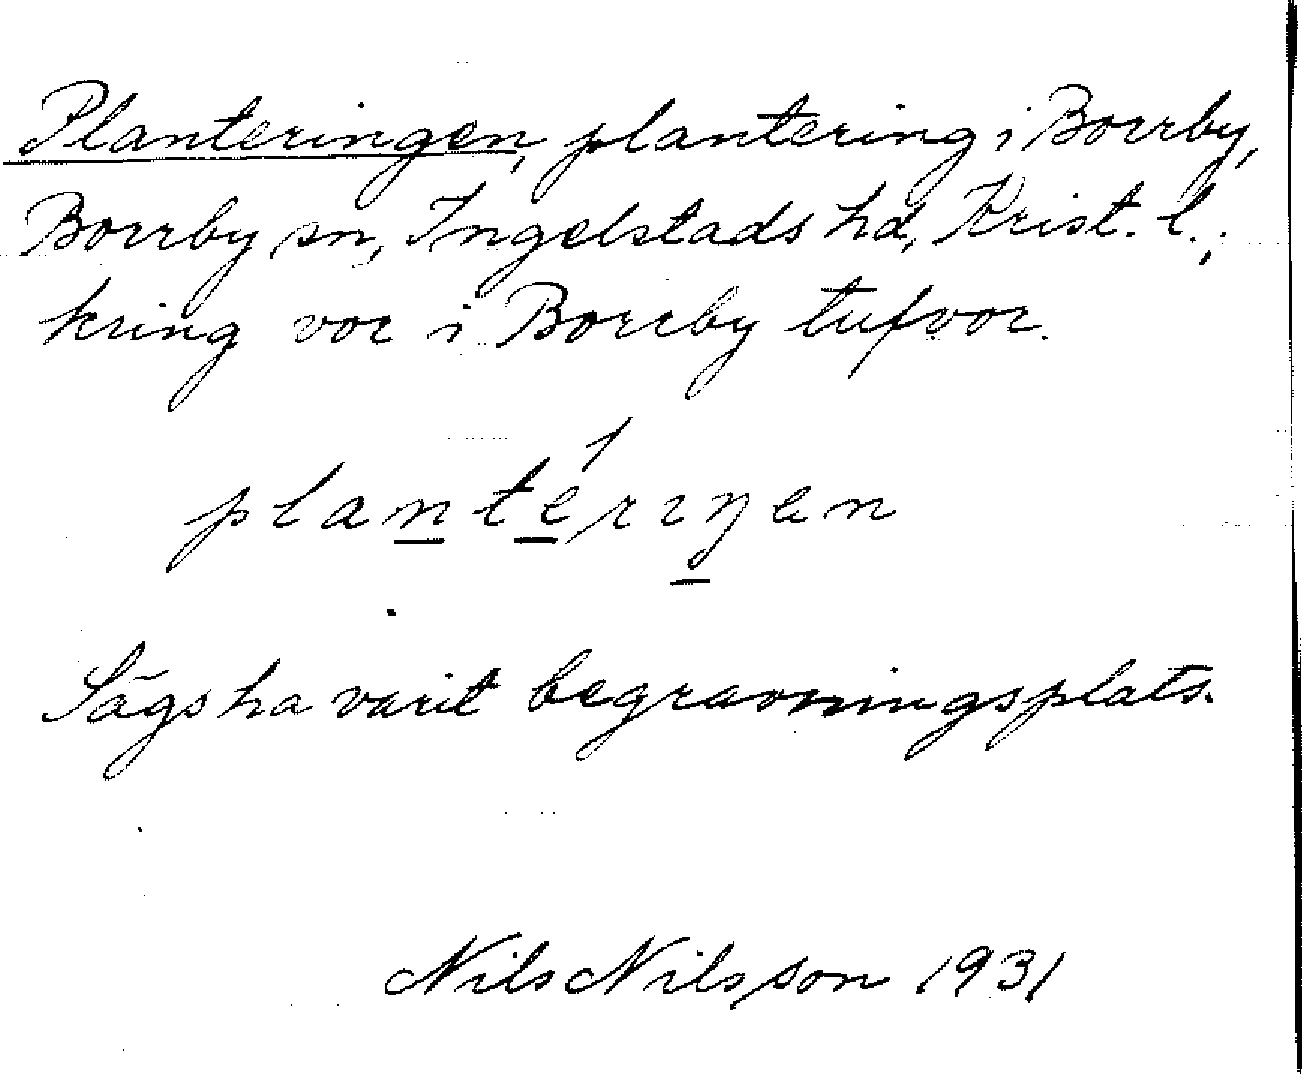 Planteringen, plantering i Borrby,
Borrby sn, Ingelstads hd, Krist. l.;
kring vor i Borrby tufvor.
plantérıŋen
Sägs ha varit begravningsplats.
Nils Nilsson 1931